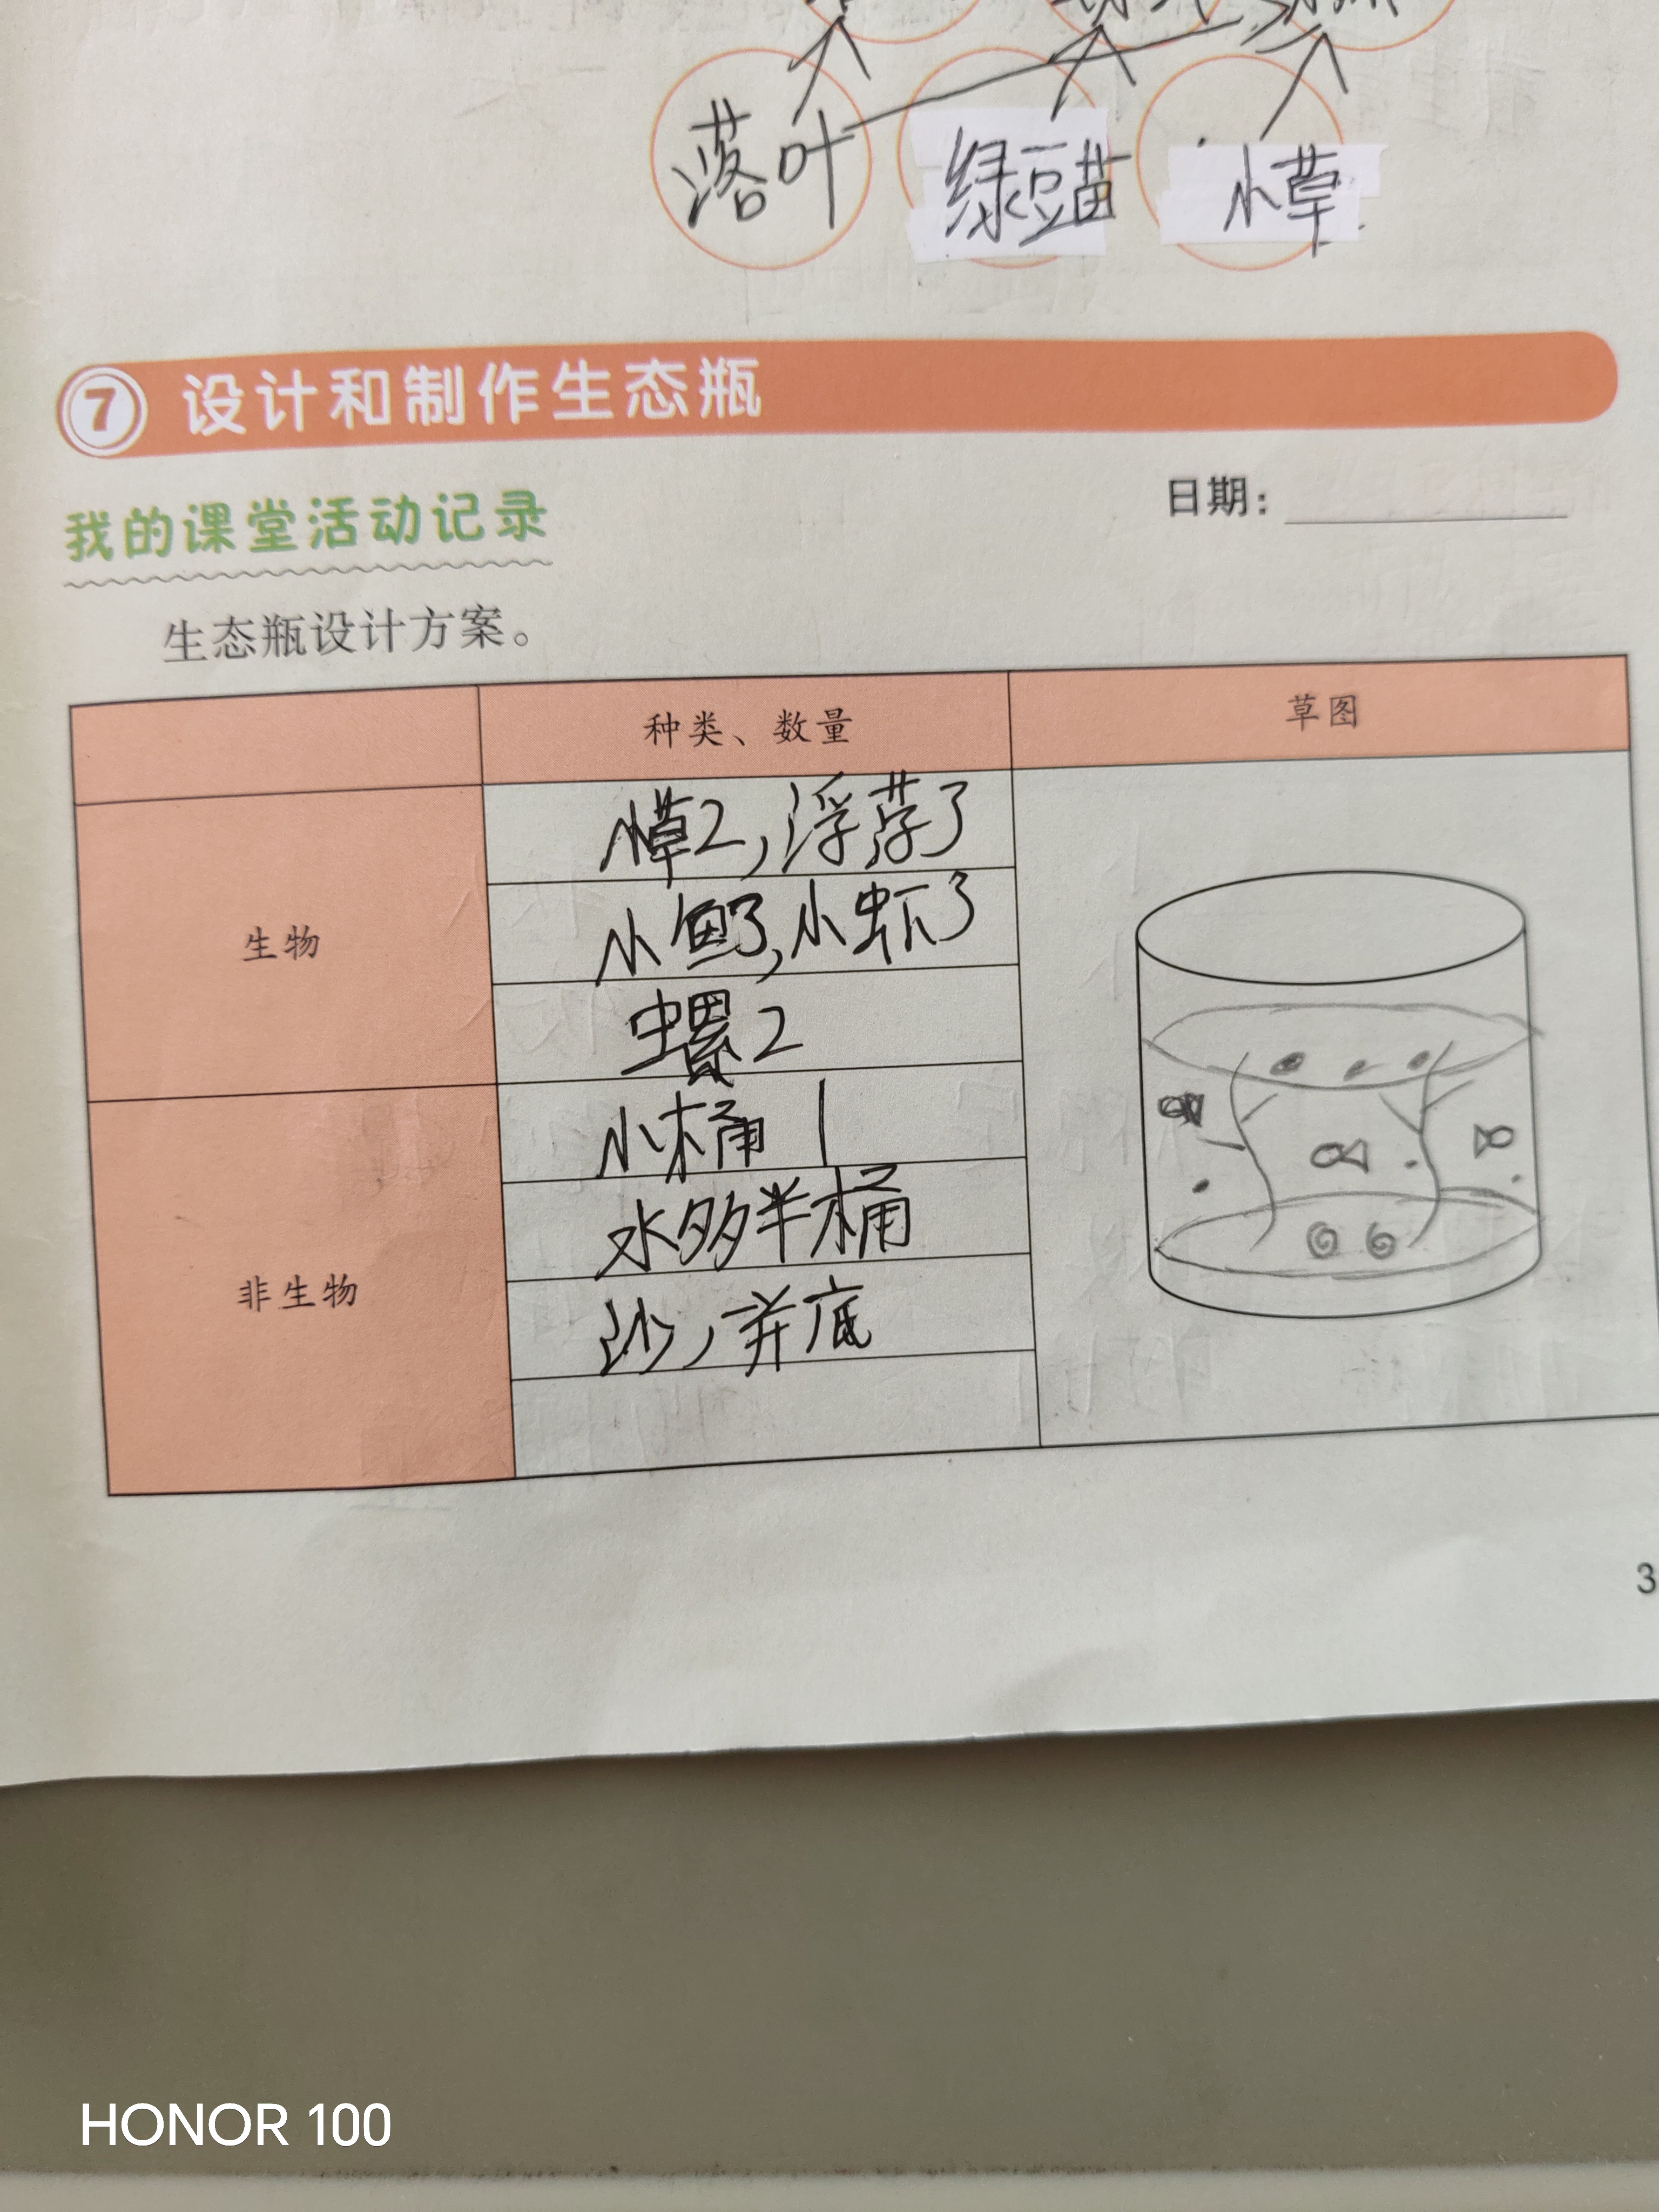 落叶 绿豆苗 小草
7 设计和制作生态瓶
我的课堂活动记录 日期：
生态瓶设计方案。
种类、数量 草图
生物
小草2，浮萍3
小鱼3，小虾3
螺2
非生物
小桶 1
水多半桶
沙，并底
3
HONOR 100